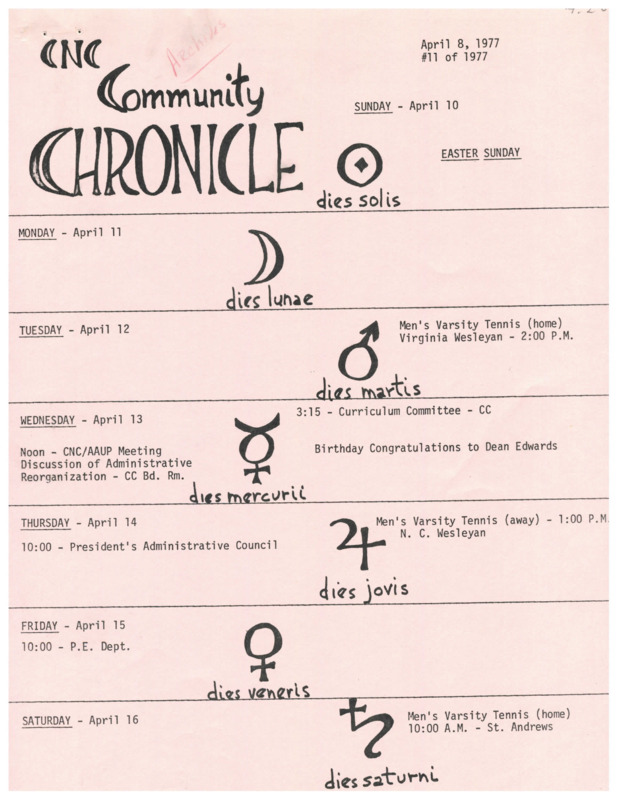 Archives
CNC
Community
CHRONICLE
April 8, 1977
#11 of 1977
SUNDAY - April 10
EASTER SUNDAY
dies solis
MONDAY - April 11
dies lunae
TUESDAY - April 12
Men's Varsity Tennis (home)
Virginia Wesleyan - 2:00 P.M.
dies martis
WEDNESDAY - April 13
3:15 - Curriculum Committee - CC
Noon - CNC/AAUP Meeting
Discussion of Administrative
Reorganization - CC Bd. Rm.
Birthday Congratulations to Dean Edwards
dies mercurii
THURSDAY - April 14
10:00 - President's Administrative Council
Men's Varsity Tennis (away) - 1:00 P.M.
N. C. Wesleyan
dies jovis
FRIDAY - April 15
10:00 - P.E. Dept.
dies veneris
SATURDAY - April 16
Men's Varsity Tennis (home)
10:00 A.M. - St. Andrews
dies saturni